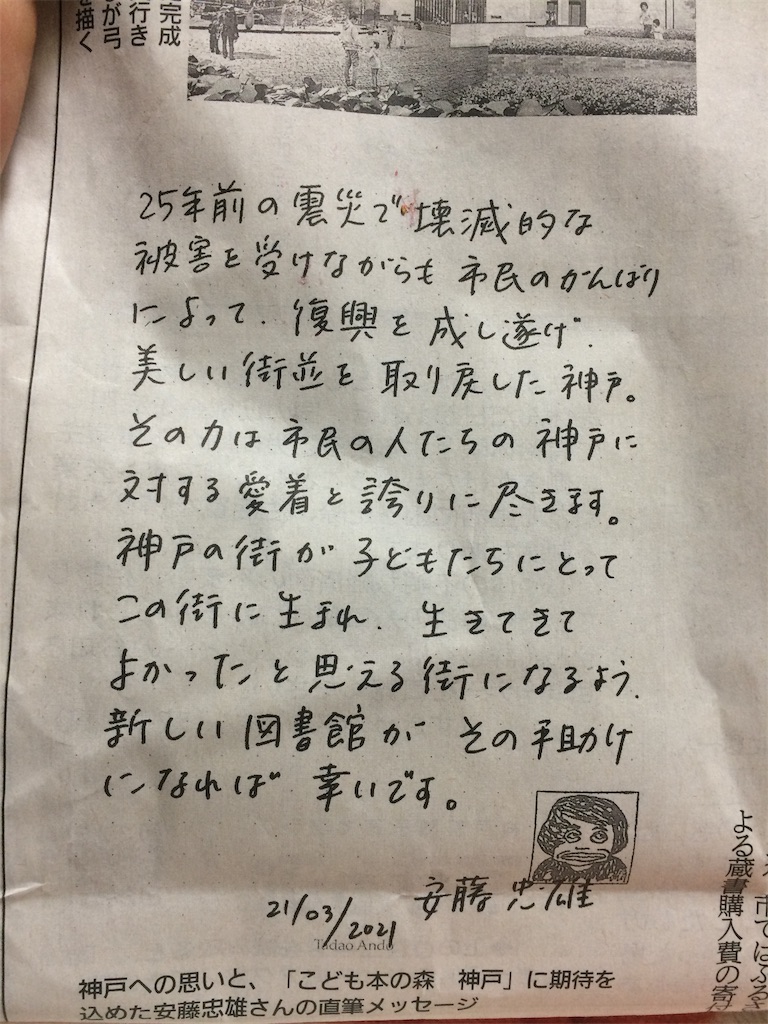 完成
行き
が弓
を描く
25年前の震災で壊滅的な
被害を受けながらも 市民のがんばり
によって、復興を成し遂げ、
美しい街並を取り戻した神戸。
その力は市民の人たちの神戸に
対する愛着と誇りに尽きます。
神戸の街が子どもたちにとって
この街に生まれ、生きてきて
よかったと思える街になるよう、
新しい図書館がその手助け
になれば幸いです。
21/03/2021 安藤忠雄
Tadao Ando
神戸への思いと、「こども本の森 神戸」に期待を
込めた安藤忠雄さんの直筆メッセージ
市ではふるさ
よる蔵書購入費の寄付